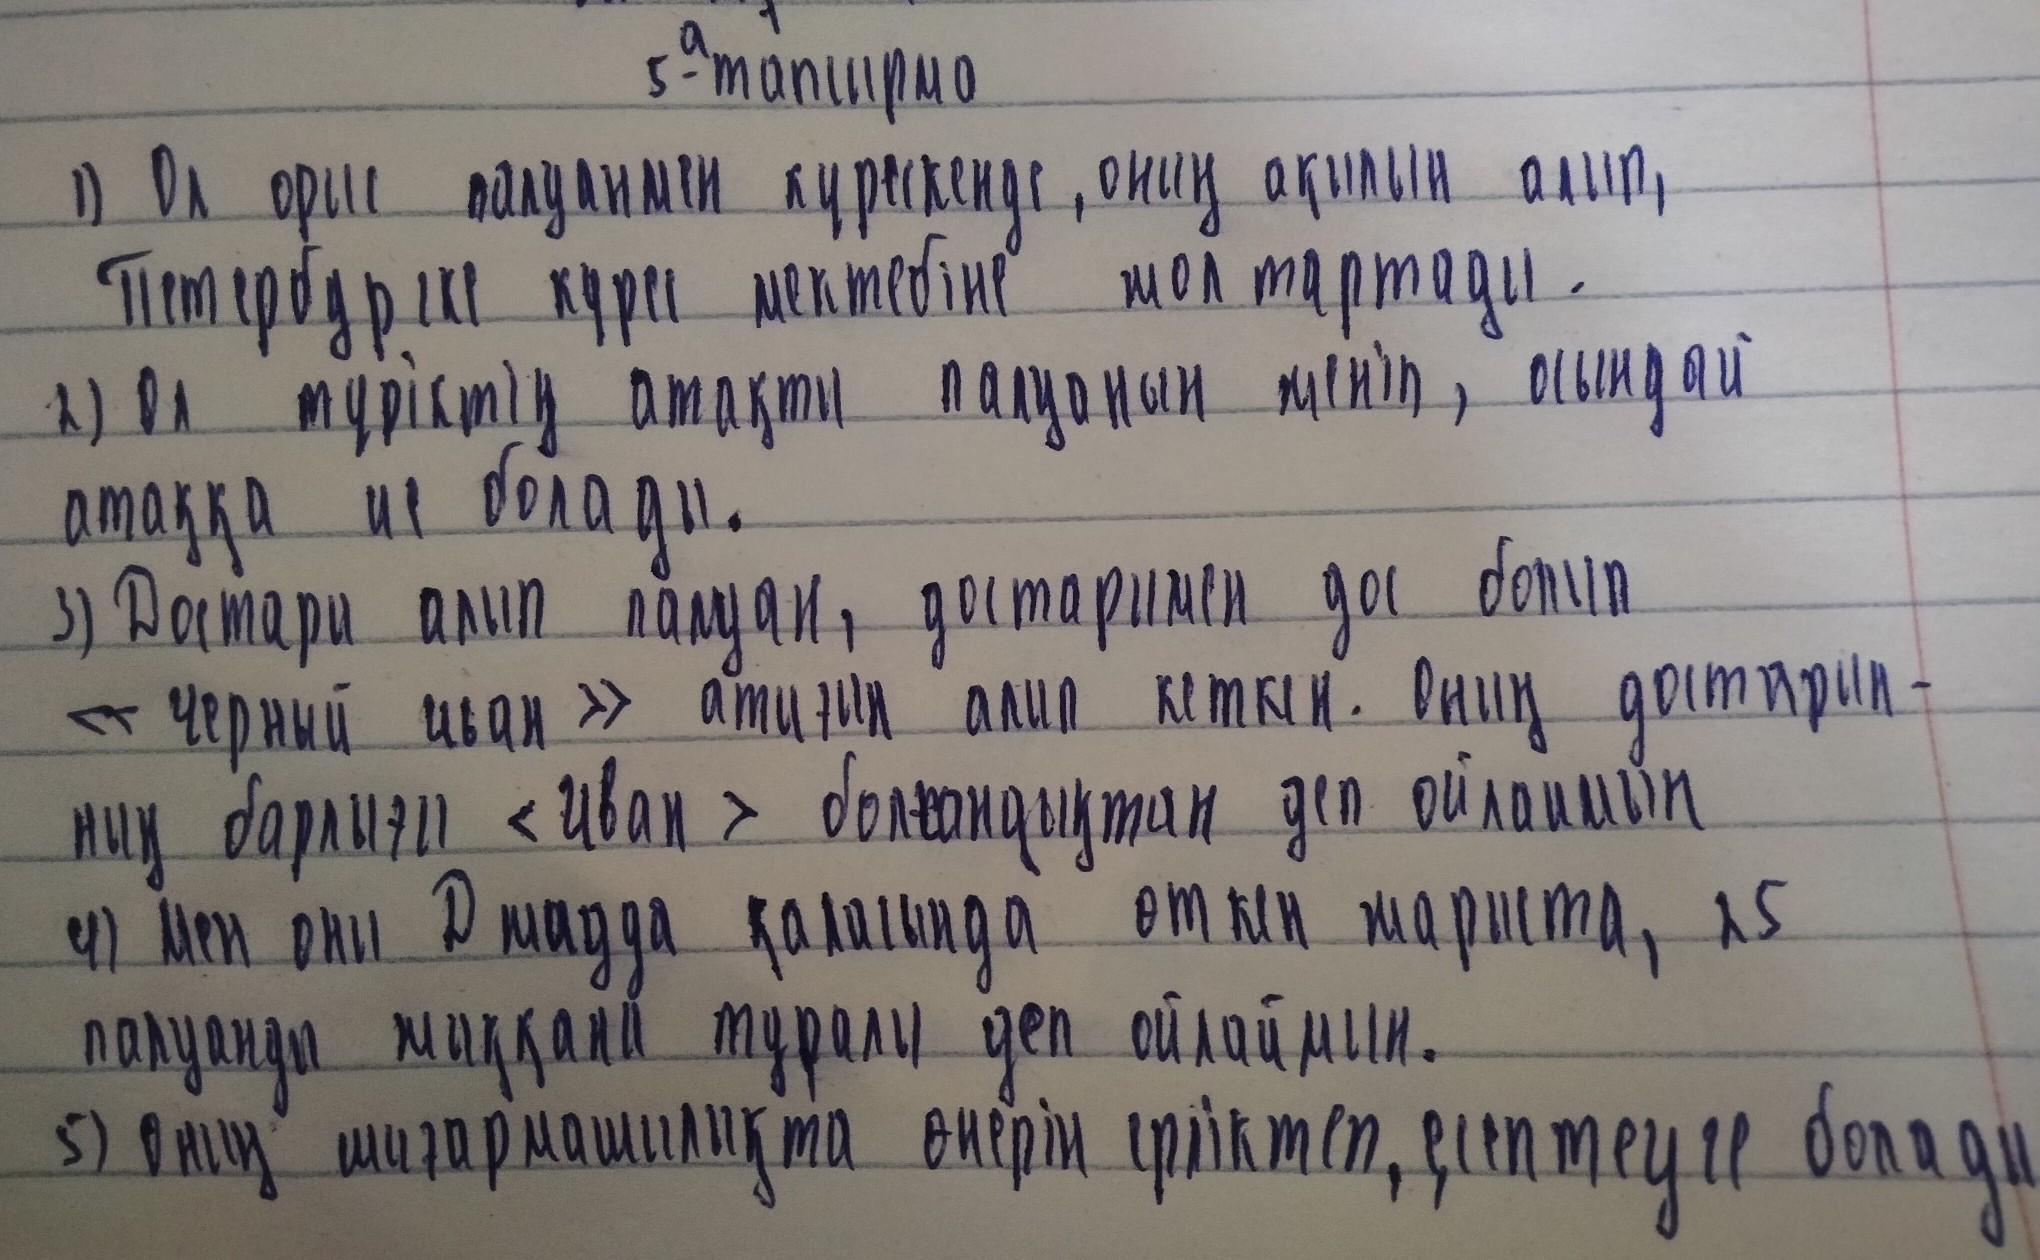 5-ᵃтапсырма
1) Ол орыс палуанмен күрескенде, оның ақылын алып,
Петербургке күрес мектебіне жол тартады.
2) Ол түріктің атақты палуанын жеңіп, осындай
атаққа ие болады.
3) Достары алып палуан, достарымен дос болып
«Черный иван» атығын алып кеткен. Оның достарын-
ның барлығы <Иван> болғандықтан деп ойлаимын
4) Мен оны Джадда қаласында өткен жарыста, 25
палуанды жыққаны туралы деп ойлаймын.
5) Оның шығармашылықта өнерін ерліктеп, есептеуге болады